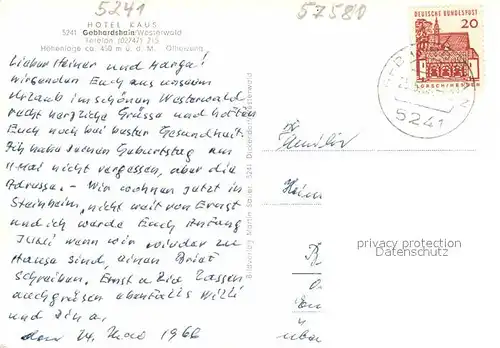 5241
57580
HOTEL KAUS
5241 Gebhardshain/Westerwald
Telefon (02747) 215
Höhenlage ca. 450 m ü. d. M.
Lieber Heiner und Marga!
Wir senden Euch aus unserm
Urlaub im schönen Westerwald
recht herzliche Grüsse und hoffen
Euch noch bei bester Gesundheit.
Ich habe Deinen Geburtstag am
11 Mai nicht vergessen, aber die
Adresse. - Wir wohnen jetzt in
Steinheim, nicht weit von Ernst
und ich werde Euch Anfang
Juni wenn wir wieder zu
Hause sind, einen Brief
Schreiben. Ernst u Ria lassen
auch grüssen ebenfalls Willi
und Tina.
den 24. Mai 1966
Bildverlag Martin Bauer, 5241 Westerwald
DEUTSCHE BUNDESPOST
20
LORSCH/HESSEN
5241
Familie
Hein
privacy protection
AnsichtskartenVersand.com